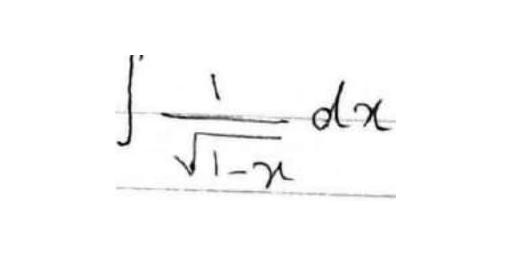 ∫ 1/√(1-x) dx